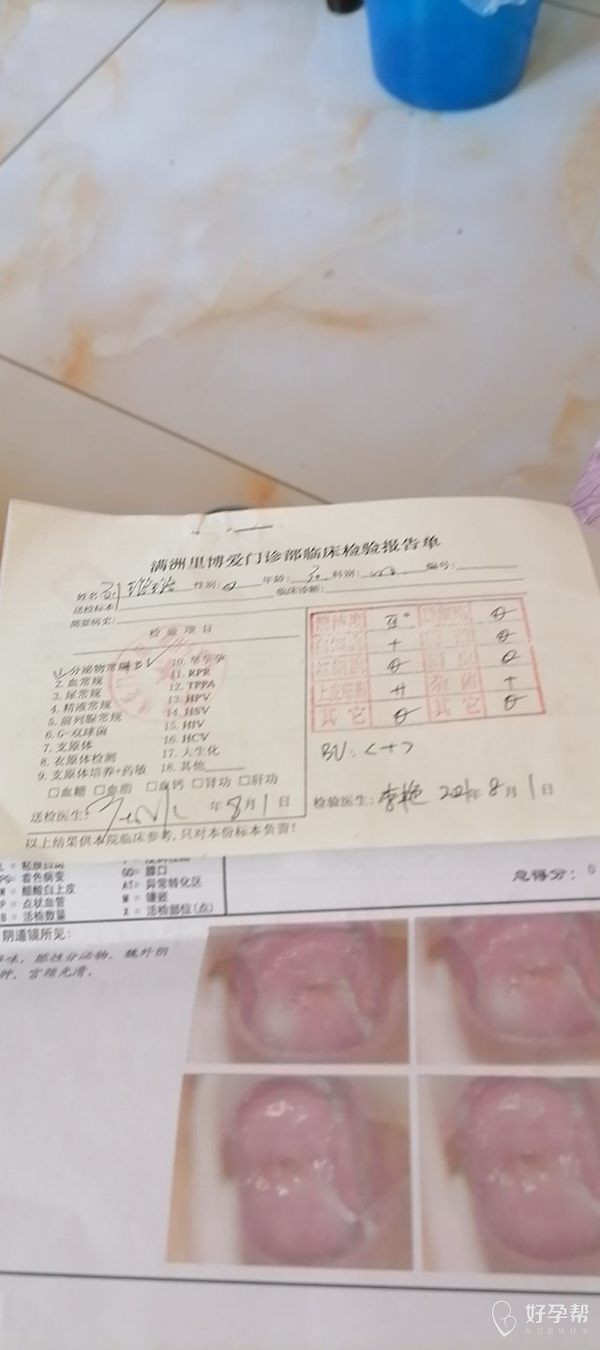 满洲里博爱门诊部临床检验报告单
姓名 性别: 年龄: 科别: 编号:
送检标本 临床诊断:
简要病史:
检验项目
1.分泌物常规 BV 10.早早孕
2.血常规 11.RPR
3.尿常规 12.TPPA
4.精液常规 13.HPV
5.前列腺常规 14.HSV
6.G-双球菌 15.HIV
7.支原体 16.HCV
8.衣原体检测 17.大生化
9.支原体培养+药敏 18.其他
□血糖 □血脂 □血钙 □肾功 □肝功
清洁度 Ⅲ°
+
红细胞
上皮细胞 ++ 杂菌 +
其它 其它
BV: <+>
送检医生: 年8月1日
检验医生: 李艳 2021年8月1日
以上结果供本院临床参考,只对本份标本负责!
L = 粘膜白斑
PG= 着色病变 GO= 腺口
W = 醋酸白上皮 AT= 异常转化区
P = 点状血管 M = 镶嵌
B = 活检数量 X = 活检部位(点)
总得分: 0
阴道镜所见:
味, 脓性分泌物, 魏外阴
肿, 宫颈光滑,
好孕帮